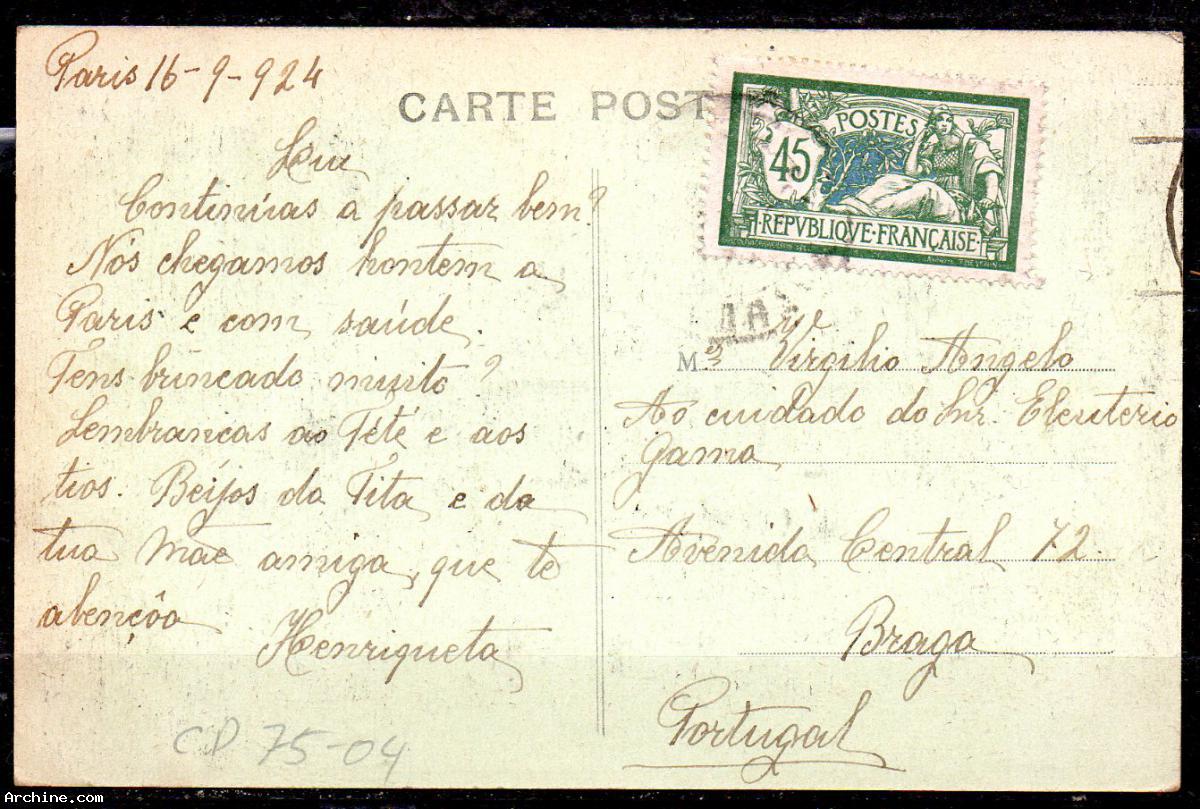 Paris 16-9-924
CARTE POST
Continúas a passar bem?
Nós chegamos hontem a
Paris e com saúde.
Tens brincado muito?
Lembranças ao Tété e aos
tios. Beijos da Tita e da
tua Mãe amiga, que te
abençôa
Henriqueta
CP 75-04
POSTES
45
REPVBLIQVE·FRANÇAISE
M
Virgilio Angelo
Ao cuidado do Snr. Eleuterio
Gama
Avenida Central 72.
Braga
Portugal
Archine.com